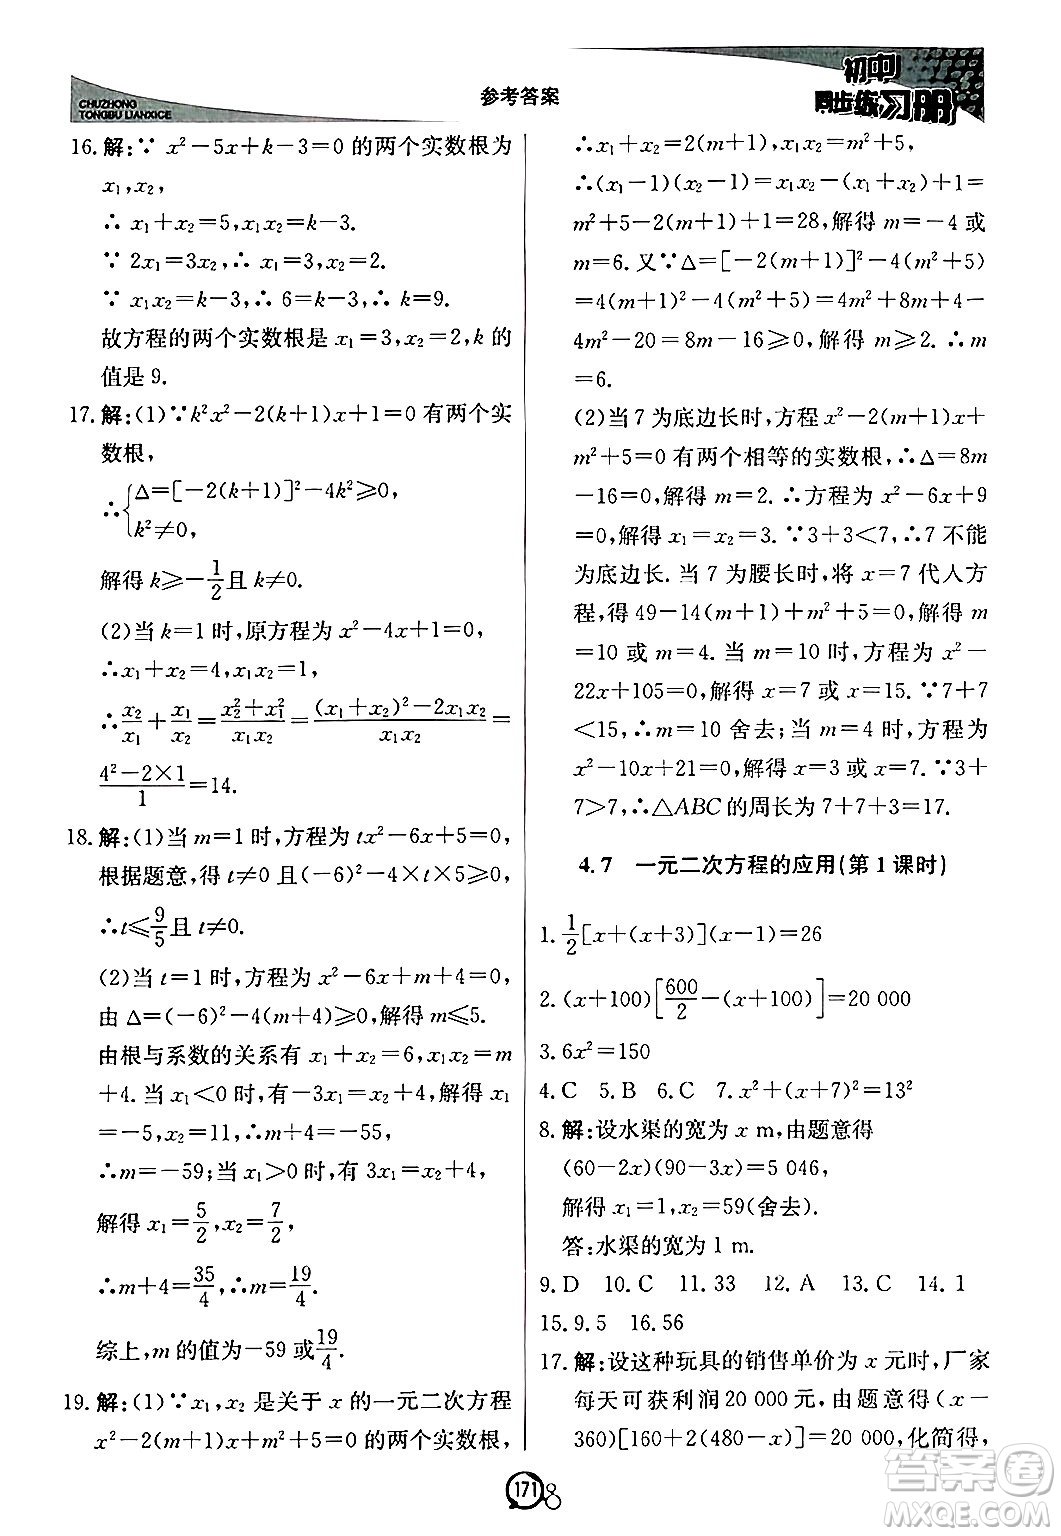 CHUZHONG
TONGBU LIANXICE
参考答案
初中
同步练习册
16. 解:∵ x²−5x+k−3=0 的两个实数根为
x₁,x₂,
∴ x₁+x₂=5,x₁x₂=k−3.
∵ 2x₁=3x₂,∴ x₁=3,x₂=2.
∵ x₁x₂=k−3,∴ 6=k−3,∴ k=9.
故方程的两个实数根是 x₁=3,x₂=2,k 的
值是 9.
17. 解:(1)∵k²x²−2(k+1)x+1=0 有两个实
数根,
∴{Δ=[−2(k+1)]²−4k²≥0,
k²≠0,
解得 k≥−1/2且 k≠0.
(2)当 k=1 时,原方程为 x²−4x+1=0,
∴x₁+x₂=4,x₁x₂=1,
∴x₂/x₁+x₁/x₂=(x₂²+x₁²)/(x₁x₂)=((x₁+x₂)²−2x₁x₂)/(x₁x₂)=
(4²−2×1)/1=14.
18. 解:(1)当 m=1 时,方程为 tx²−6x+5=0,
根据题意,得 t≠0 且(−6)²−4×t×5≥0,
∴t≤9/5且 t≠0.
(2)当 t=1 时,方程为 x²−6x+m+4=0,
由 Δ=(−6)²−4(m+4)≥0,解得 m≤5.
由根与系数的关系有 x₁+x₂=6,x₁x₂=m
+4.当 x₁<0 时,有−3x₁+x₂=26,解得 x₁
=−5,x₂=11,∴m+4=−55,
∴m=−59;当 x₁>0 时,有 3x₁+x₂=11,
解得 x₁=5/2,x₂=7/2,
∴m+4=35/4,∴m=19/4.
综上,m 的值为−59 或19/4.
19. 解:(1)∵x₁,x₂是关于 x 的一元二次方程
x²−2(m+1)x+m²+5=0 的两个实数根,
∴x₁+x₂=2(m+1),x₁x₂=m²+5,
∴(x₁−1)(x₂−1)=x₁x₂−(x₁+x₂)+1=
m²+5−2(m+1)+1=28,解得 m=−4 或
m=6. 又∵Δ=[−2(m+1)]²−4(m²+5)
=4(m+1)²−4(m²+5)=4m²+8m+4−
4m²−20=8m−16≥0,解得 m≥2. ∴m
=6.
(2)当 7 为底边长时,方程 x²−2(m+1)x+
m²+5=0 有两个相等的实数根,∴Δ=8m
−16=0,解得 m=2. ∴方程为 x²−6x+9
=0,解得 x₁=x₂=3. ∵3+3<7,∴7 不能
为底边长. 当 7 为腰长时,将 x=7 代人方
程,得 49−14(m+1)+m²+5=0,解得 m
=10 或 m=4. 当 m=10 时,方程为 x²−
22x+105=0,解得 x=7 或 x=15. ∵7+7
<15,∴m=10 舍去;当 m=4 时,方程为
x²−10x+21=0,解得 x=3 或 x=7. ∵3+
7>7,∴△ABC 的周长为 3+7+7=17.
4.7 一元二次方程的应用(第 1 课时)
1. 1/2[x+(x+3)](x−1)=26
2. (x+100)[600/2−(x+100)]=20 000
3. 6x²=150
4. C 5. B 6. C 7. x²+(x+7)²=13²
8. 解:设水渠的宽为 x m,由题意得
(60−2x)(90−3x)=5 046,
解得 x₁=1,x₂=59(舍去).
答:水渠的宽为 1 m.
9. D 10. C 11. 33 12. A 13. C 14. 1
15. 9. 5 16. 56
17. 解:设这种玩具的销售单价为 x 元时,厂家
每天可获利润 20 000 元,由题意得,(x−
360)[160+2(480−x)]=20 000,化简得,
171
答案圈
MXQE.COM